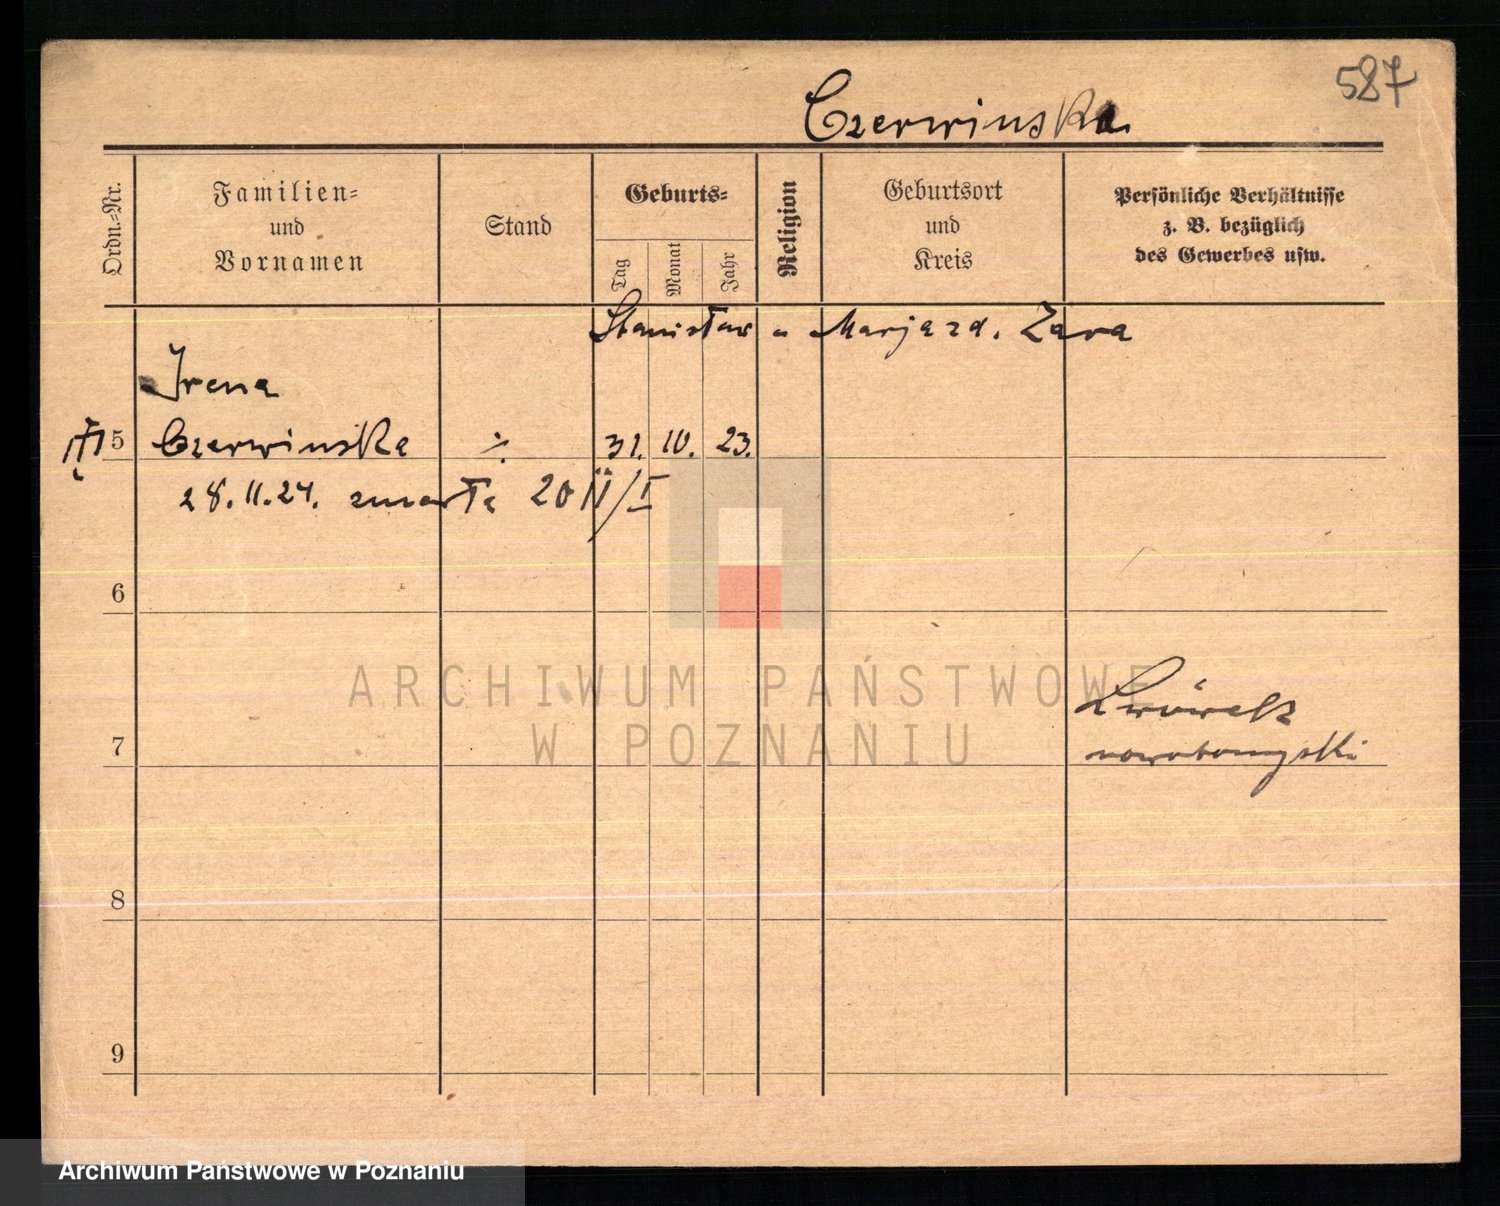 587
Czerwinska
Ordn.=Nr.
Familien=
und
Vornamen
Stand
Geburts=
Tag
Monat
Jahr
Religion
Geburtsort
und
Kreis
Persönliche Verhältnisse
z. B. bezüglich
des Gewerbes usw.
Stanisław u Marja zd. Zara
Irena
5 Czerwinska ·/· 31. 10. 23.
28.11.24. zmarła 20 II/I
6
ARCHIWUM PAŃSTWOWE
W POZNANIU
Lwówek
nowotomyski
7
8
9
Archiwum Państwowe w Poznaniu